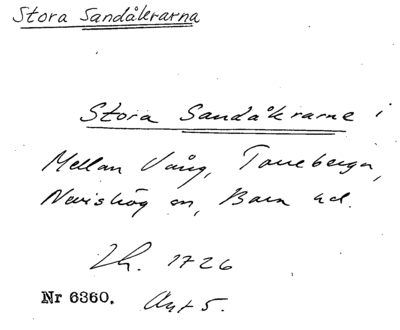 Stora Sandåkrarna
Stora Sandåkrarne i
Mellan Vång, Tanneberga,
Nevishög sn, Bara hd.
Lh. 1726
Nr 6360. Akt 5.